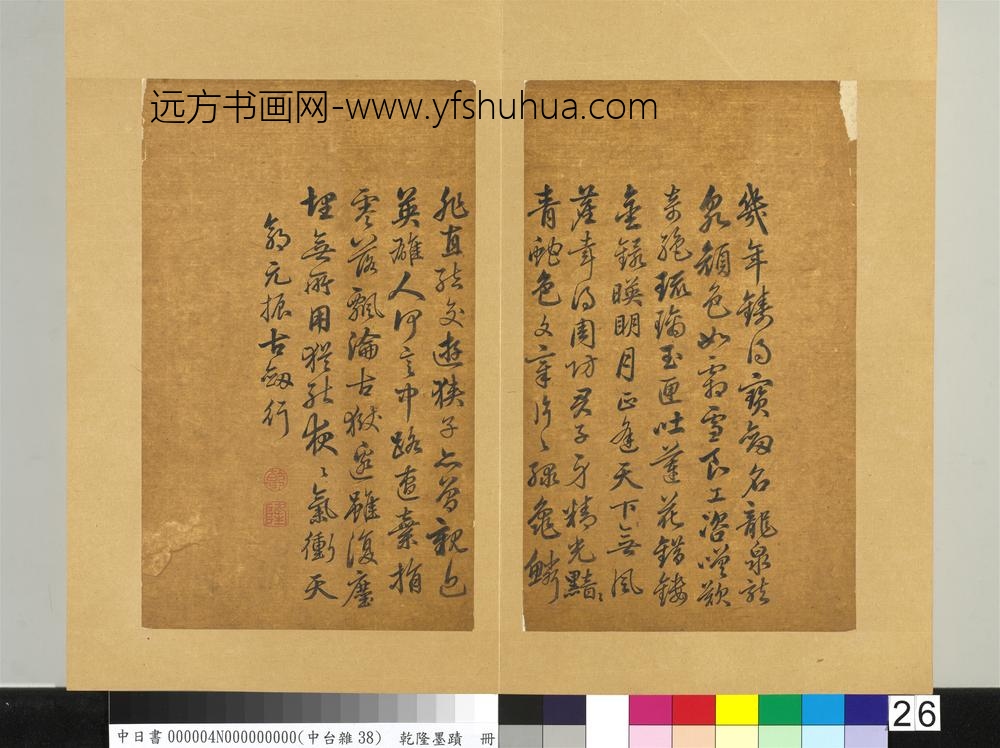 远方书画网-www.yfshuhua.com
幾年鑄得寶劒名龍泉龍
泉顏色如霜雪良工咨嗟歎
奇絕琉璃玉匣吐蓮花錯鏤
金鐶暎明月正逢天下無風
塵幸得周防君子身精光黯〻
青虵色文章片〻綠龜鱗
非直結交遊狹子亦曾親近
英雄人何言中路遭棄捐
零落飄淪古獄邊雖復塵
埋無所用猶能夜〻氣衝天
郭元振古劒行
乾
隆
26
中日書000004N000000000(中台雜38) 乾隆墨蹟 冊